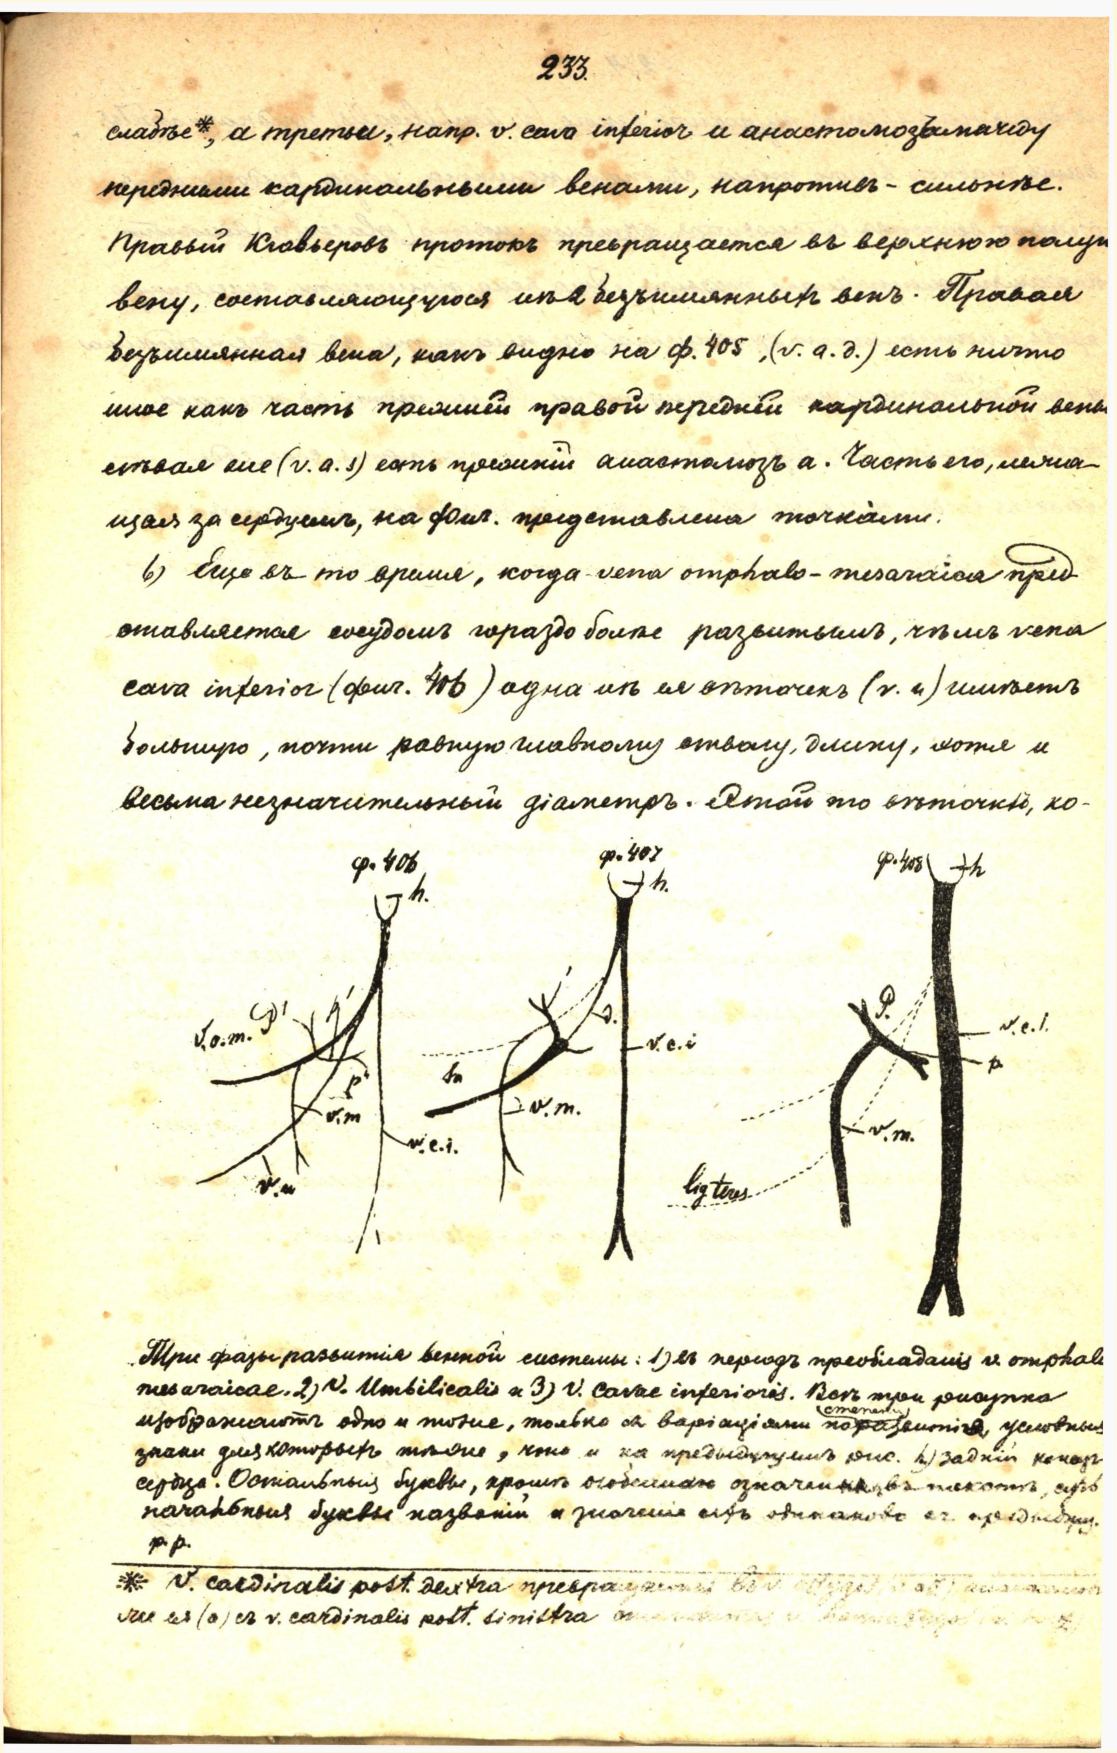 233.
слабѣе*, а третьи, напр. v. cava inferior и анастомозъ между
передними кардинальными венами, напротивъ - сильнѣе.
Правый Кювьеровъ протокъ превращается въ верхнюю полую
вену, составляющуюся изъ 2 безъимянныхъ венъ. Правая
безъимянная вена, какъ видно на ф. 405, (v. a. d.) есть ничто
иное какъ часть прежней правой передней кардинальной вены
лѣвая же (v. a. s) есть прежній анастомозъ a. Часть его, лежа-
щая за сердцемъ, на фиг. представлена точками.
b) Еще въ то время, когда vena omphalo-mesaraica пред-
ставляется сосудомъ гораздо болѣе развитымъ, чѣмъ vena
cava inferior (фиг. 406) одна изъ ея вѣточекъ (v. u) имѣетъ
большую, почти равную главному стволу, длину, хотя и
весьма незначительный діаметръ. Этой то вѣточкѣ, ко-
ф. 406
ф. 407
ф. 408
h.
h.
h
v.o.m.
P'
p'
v.m
v.u
v.c.i.
v.m.
v.c.i
P.
v.c.i.
p
v.m.
lig teres
Три фазы развитія венной системы: 1) въ періодъ преобладанія v. omphalo
mesaraicae. 2) V. Umbilicalis и 3) V. Cavae inferioris. Всѣ три рисунка
изображаютъ одно и тоже, только съ варіаціями по степени развитія, условные
знаки для которыхъ тѣ же, что и на предыдущемъ рис. h) задній конецъ
сердца. Остальныя буквы, кромѣ особенно означенныхъ въ текстѣ, суть
начальныя буквы названій и значеніе ихъ одинаково съ предыдущ.
p.p.
* V. cardinalis post. dextra превращается въ v.
ея (a) съ v. cardinalis post. sinistra